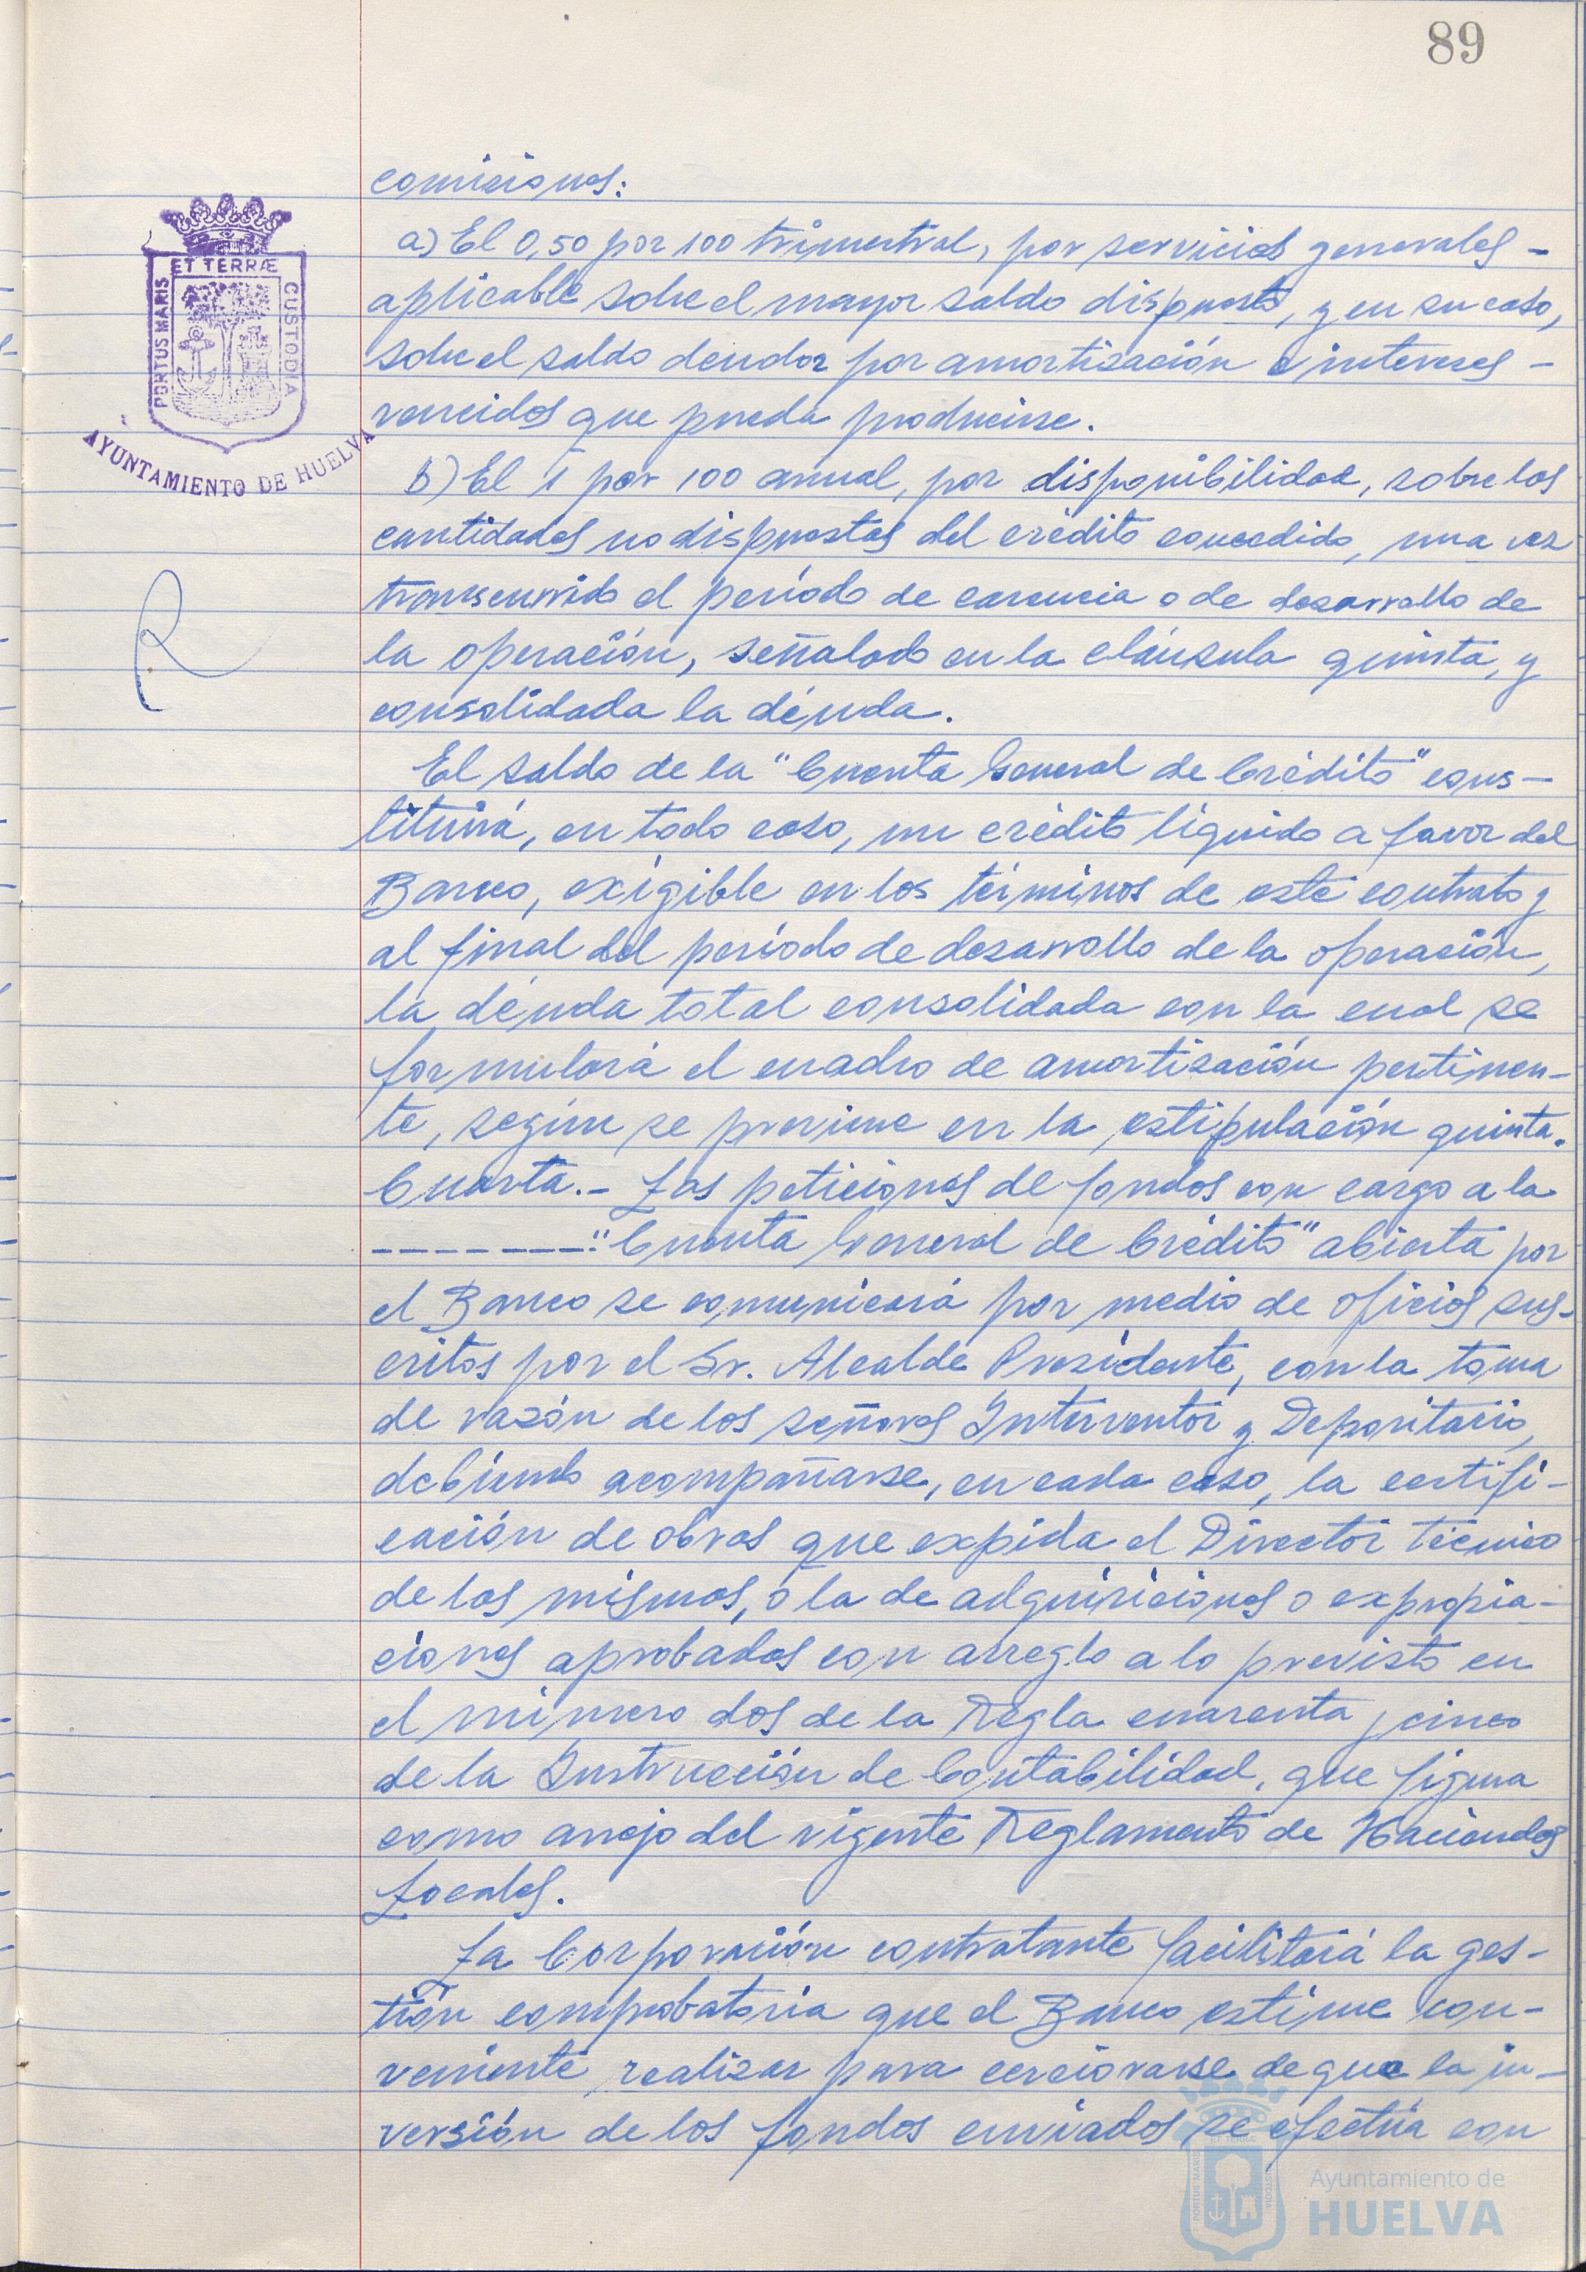 89
comisiones:
a) El 0,50 por 100 trimestral, por servicios generales -
aplicable sobre el mayor saldo dispuesto, y en su caso,
sobre el saldo deudor por amortización e intereses -
vencidos que pueda producirse.
b) El 1 por 100 anual, por disponibilidad, sobre las
cantidades no dispuestas del crédito concedido, una vez
transcurrido el período de carencia o de desarrollo de
la operación, señalado en la cláusula quinta, y
consolidada la déuda.
El saldo de la "Cuenta General de Crédito" cons-
tituirá, en todo caso, un crédito líquido a favor del
Banco, exigible en los términos de este contrato y
al final del período de desarrollo de la operación,
la déuda total consolidada con la cual se
formulará el cuadro de amortización pertinen-
te, según se previene en la estipulación quinta.
Cuarta.- Las peticiones de fondos con cargo a la
-------"Cuenta General de Crédito" abierta por
el Banco se comunicará por medio de oficios sus-
critos por el Sr. Alcalde Presidente, con la toma
de razón de los señores Interventor y Depositario,
debiendo acompañarse, en cada caso, la certifi-
cación de obras que expida el Director técnico
de las mismas, o la de adquisiciones o expropia-
ciones aprobadas con arreglo a lo previsto en
el número dos de la Regla cuarenta y cinco
de la Instrucción de Contabilidad, que figura
como anejo del vigente Reglamento de Haciendas
Locales.
La Corporación contratante facilitará la ges-
tión comprobatoria que el Banco estime con-
veniente realizar para cerciorarse de que la in-
versión de los fondos enviados se efectúa con
PORTUS MARIS ET TERRÆ CUSTODIA
AYUNTAMIENTO DE HUELVA
Ayuntamiento de
HUELVA